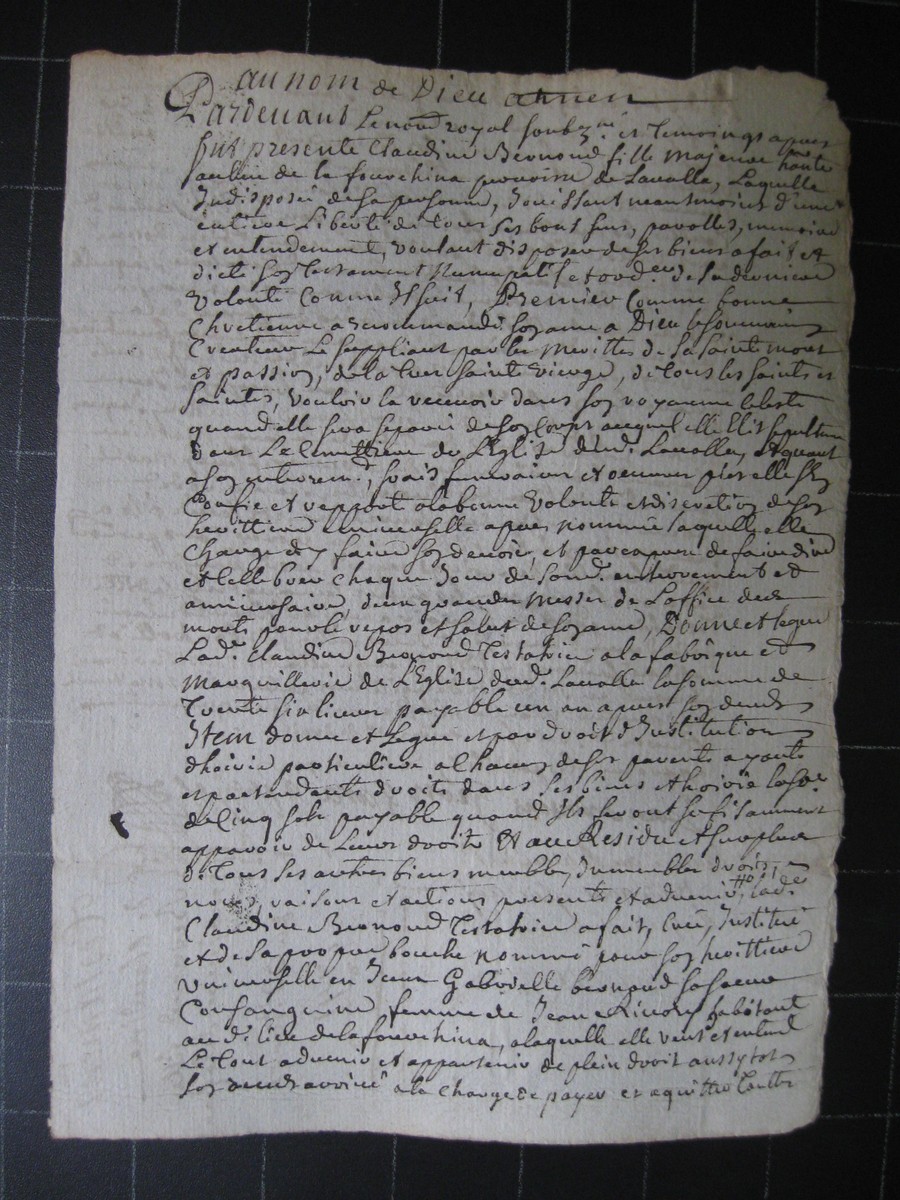 au nom de Dieu amen
Pardevant Le not.re royal soubz.né et Temoings apres
fut presente Claudine Beraud fille majeure habitante
au lieu de la fourchina parroisse de Lavalla, Laquelle
Indisposée de sa personne, Jouissant neantmoins d'une
entiere Liberté de tous ses bons sens, parolles, memoire
et entendement, voulant disposer de ses biens a fait et
dicté son Testament Nuncupatif et ord.re de sa derniere
Volonté Comme Il suit, Premier Comme bonne
Chretienne a recommandé son ame a Dieu le souverain
Createur Le suppliant par les merittes de sa sainte mort
et passion, de la tres sainte vierge, de tous les saints et
saintes, vouloir la recevoir dans son royaume celeste
quand elle sera separée de son corps auquel elle Elit sepulture
dans Le Cimettiere de L'Eglise dud. Lavalla, et quant
a son enterrem.t, frais funeraires et oeuvres pies elle s'en
Confie et raport a la bonne volonté et discretion de son
herittiere universelle apres nommée laquelle elle
Charge d'y faire son devoir, et par expres de faire dire
et Cellebrer Chaque Jour de sond. enterrement et
anniversaire, deux grandes Messes de L'office des
morts pour le repos et salut de son ame, Donne et legue
Lad. Claudine Beraud Testatrice a la fabrique et
Marguillerie de L'Eglise dud. Lavalla la somme de
Trente six livres payable un an apres son deceds
Item donne et Legue et par droit d'Institution
d'hoirie particuliere a Chacun de ses parents ayants
et pretendants droits dans ses biens et hoirie la so.e
de Cinq sols payable quand Ils seront suffisamment
apparoir de Leurs droits Et au Residu et surplus
de Tous ses autres biens meubles, Immeubles, droits,
noms, raisons et actions presents et advenir lad.
Claudine Beraud Testatrice a fait, Creé, Institué
et de sa propre bouche nommé pour son herittiere
universelle en Jceux Gabrielle beraud sa soeur
Consanguine femme de Jean habitant
au d. lieu de la fourchina, a laquelle elle veut et entend
Le tout advenir et appartenir de plein droit aussytot
son deceds arrivé a la Charge de payer et aquitter Toutes